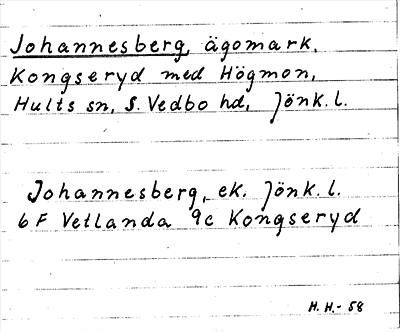 Johannesberg, ägomark,
Kongseryd med Högmon,
Hults sn, S. Vedbo hd, Jönk. l.
Johannesberg, ek. Jönk. l.
6 F Vetlanda 9c Kongseryd
H. H. - 58